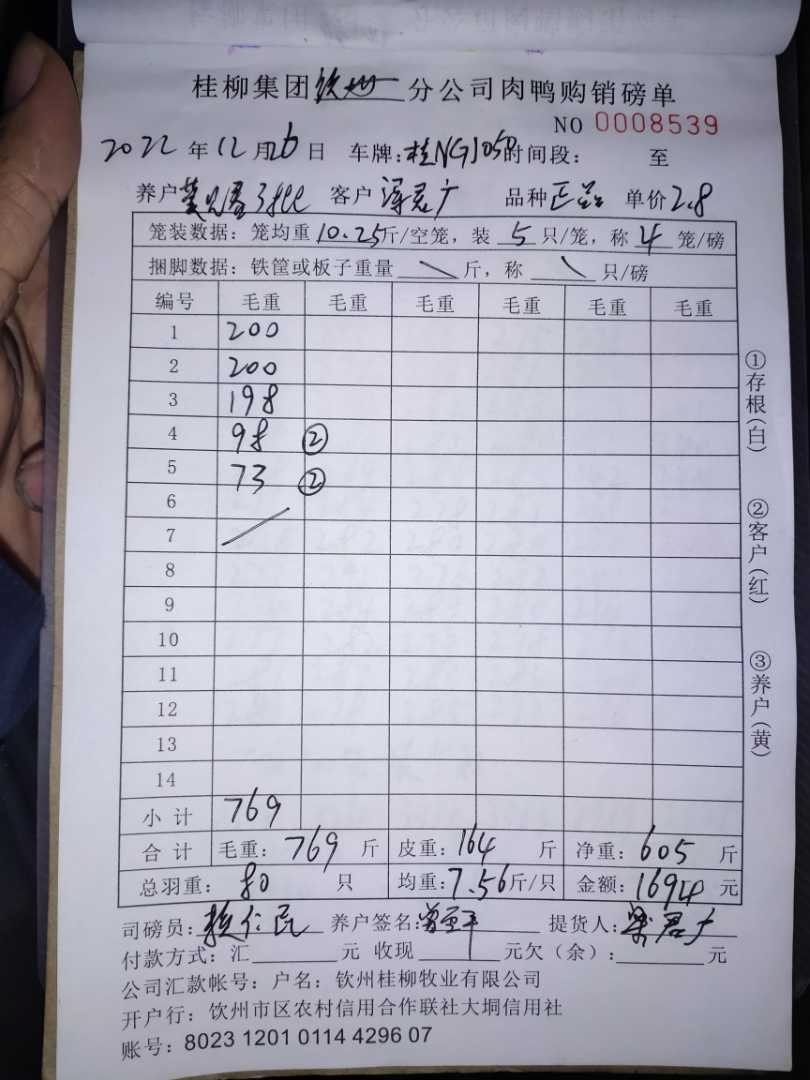 桂柳集团钦州分公司肉鸭购销磅单
NO 0008539
2022年12月26日 车牌:桂NG105P时间段: 至
养户 客户 君广 品种正品 单价2.8
笼装数据:笼均重10.25斤/空笼,装5只/笼,称4笼/磅
捆脚数据:铁筐或板子重量\斤,称\只/磅
编号 毛重 毛重 毛重 毛重 毛重 毛重
1 200
2 200
3 198
4 98 ②
5 73 ②
6
7 /
8
9
10
11
12
13
14
小计 769
合计 毛重:769斤 皮重:164斤 净重:605斤
总羽重:80只 均重:7.56斤/只 金额:1694元
司磅员:仁民 养户签名: 提货人:梁君广
付款方式:汇 元 收现 元欠(余): 元
公司汇款帐号:户名:钦州桂柳牧业有限公司
开户行:钦州市区农村信用合作联社大垌信用社
账号:8023 1201 0114 4296 07
①存根(白)
②客户(红)
③养户(黄)